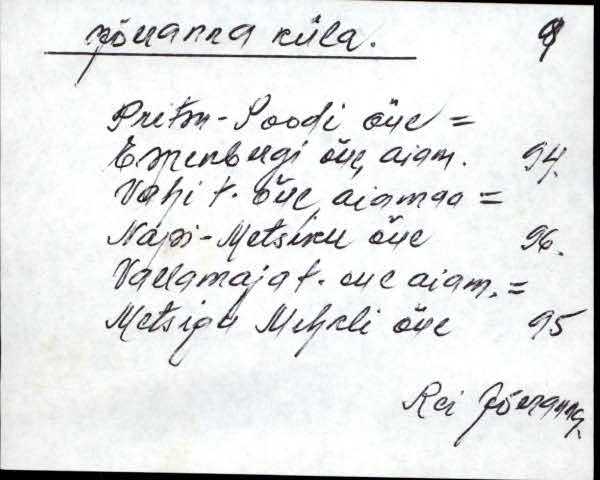 Jõeranna küla. 9
Pritsu-Poodi õue =
Espenbergi õue, aiam. 94.
Vahi t. õue, aiamaa =
Näpi-Metsiku õue 96.
Vallamaja t. oue aiam. =
Metsigu Mihkli õue 95
Rei Jõeranna,